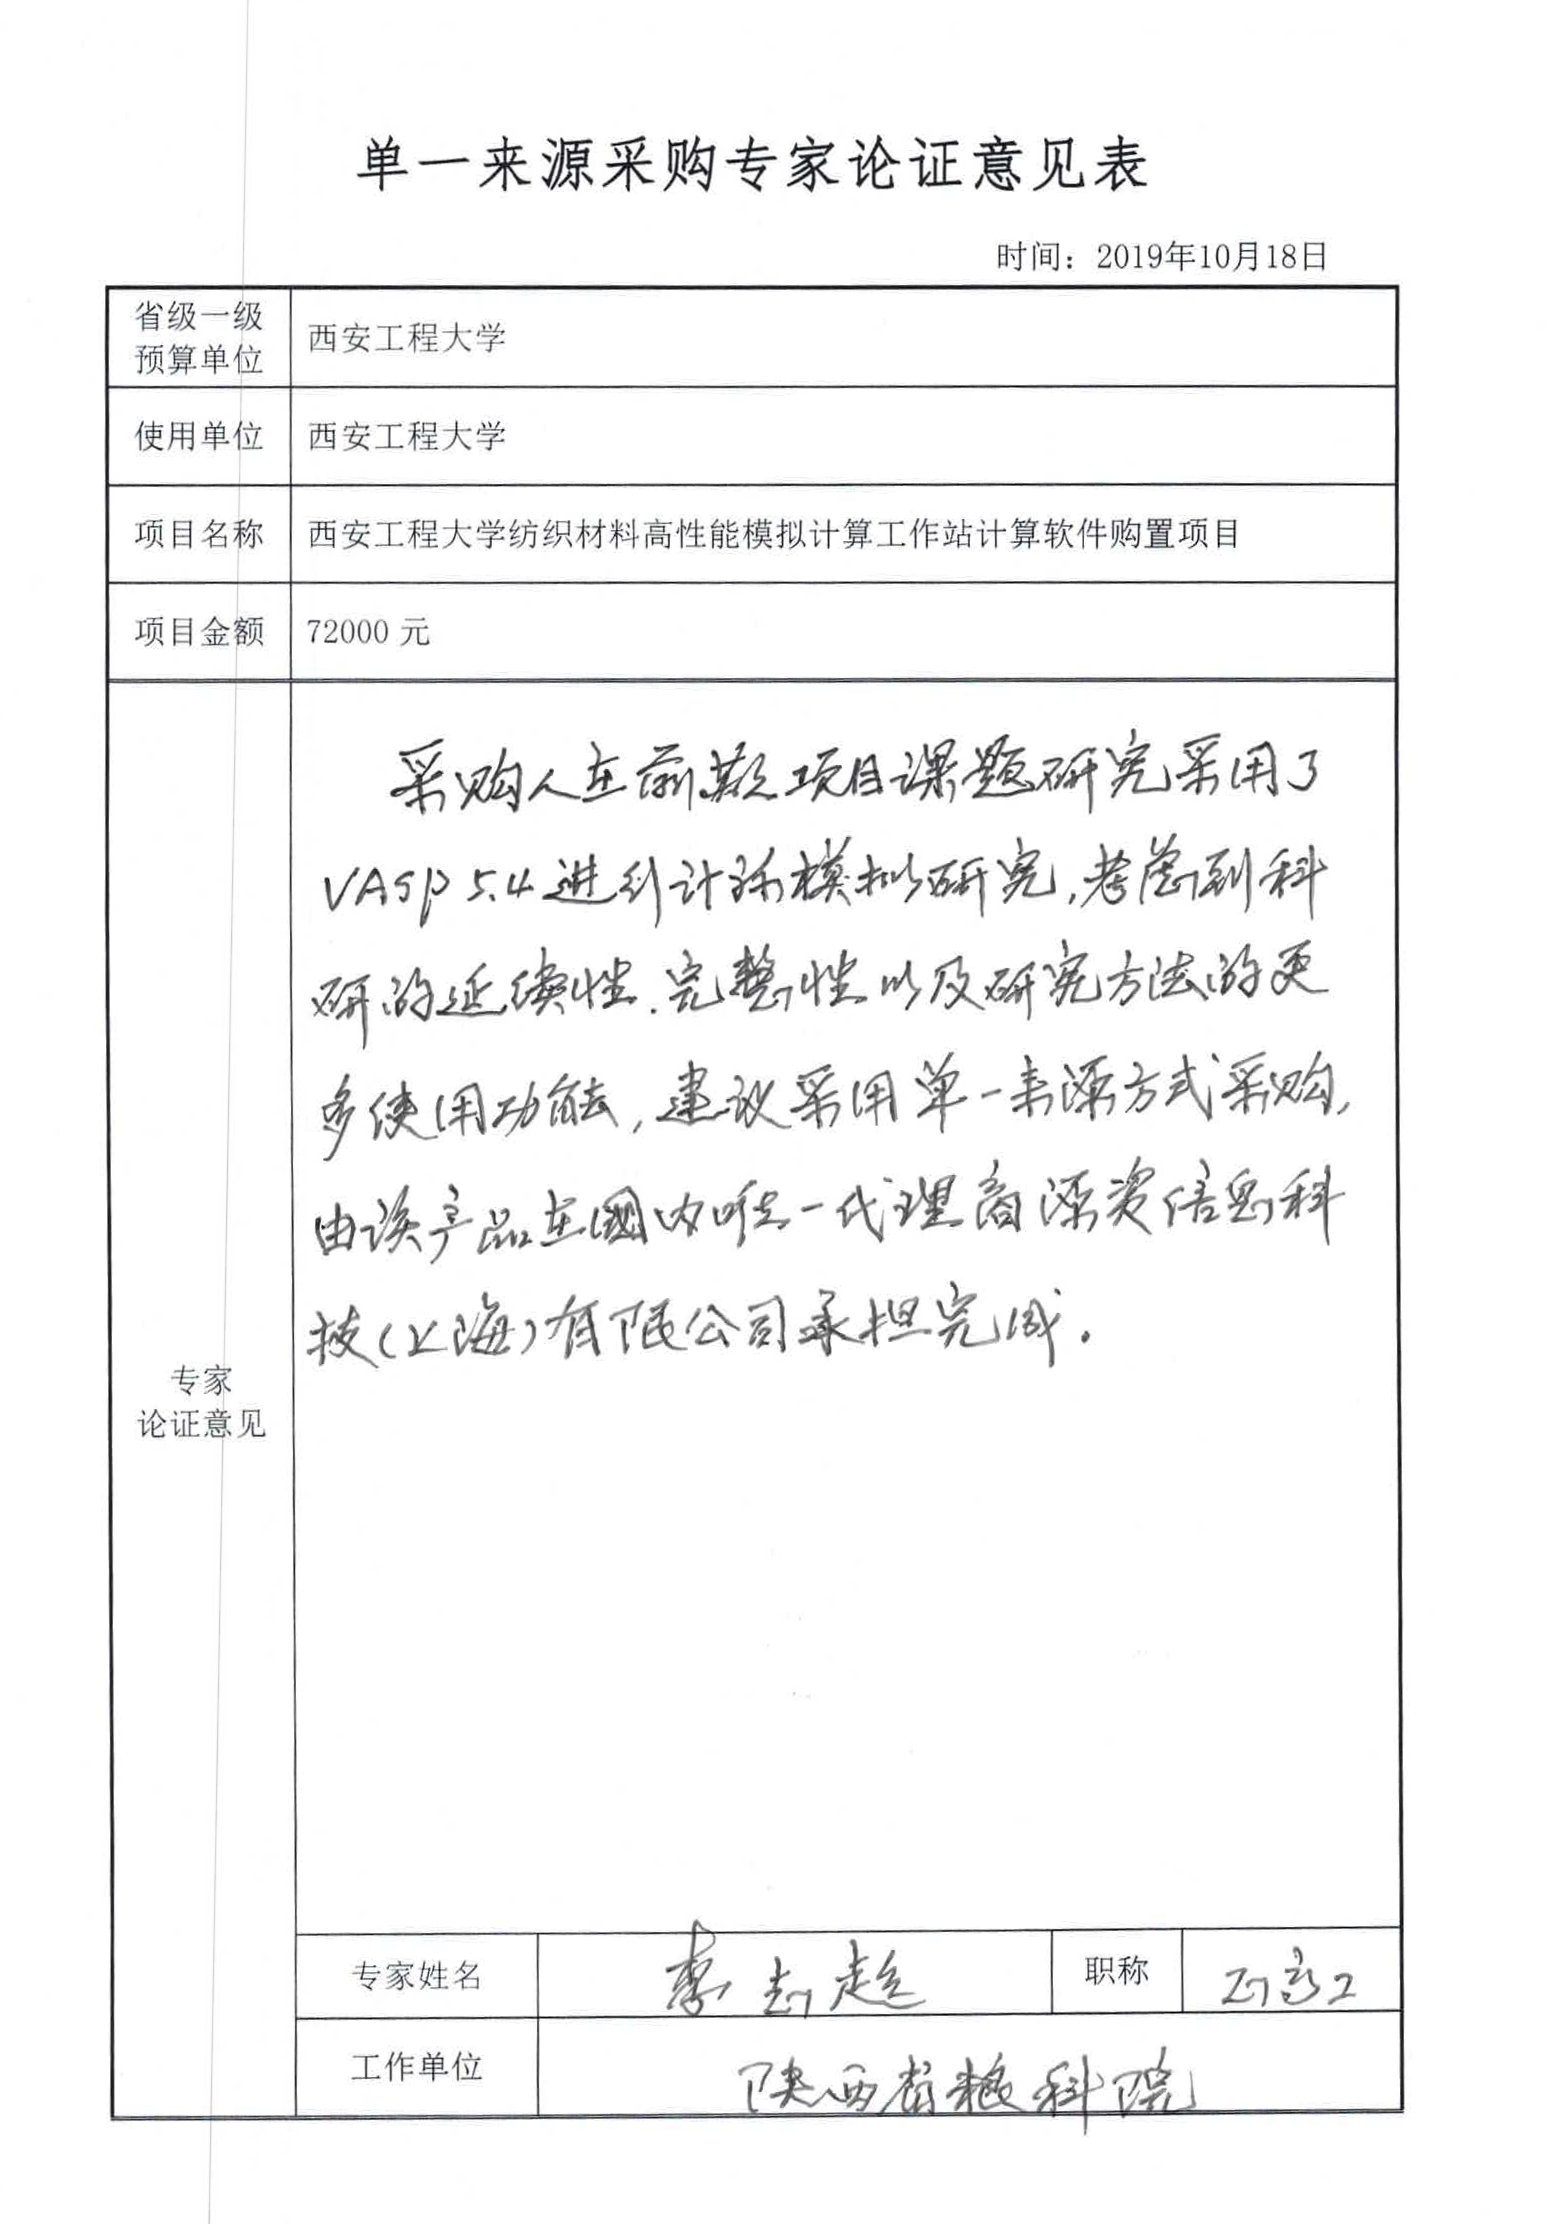 单一来源采购专家论证意见表
时间：2019年10月18日
省级一级
预算单位
西安工程大学
使用单位
西安工程大学
项目名称
西安工程大学纺织材料高性能模拟计算工作站计算软件购置项目
项目金额
72000 元
采购人在前期项目课题研究采用了
VASP 5.4进行计算模拟研究,考虑到科
研的延续性.完整性以及研究方法的更
多使用功能,建议采用单一来源方式采购,
由该产品在国内唯一代理商源资信息科
技(上海)有限公司承担完成.
专家
论证意见
专家姓名
李志超
职称
高工
工作单位
陕西省粮科院